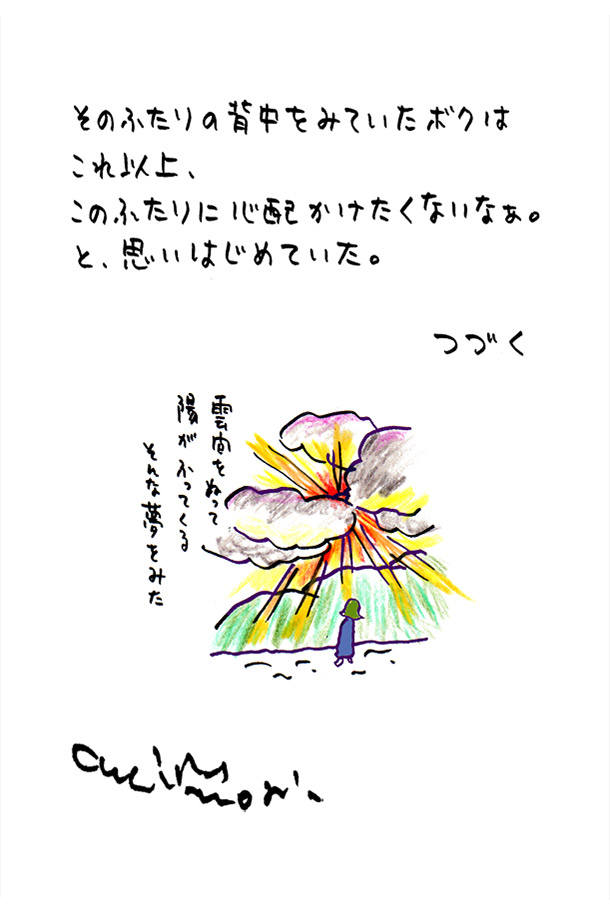 そのふたりの背中をみていたボクは
これ以上、
このふたりに心配かけたくないなぁ。
と、思いはじめていた。
つづく
雲間をぬって
陽がふってくる
そんな夢をみた